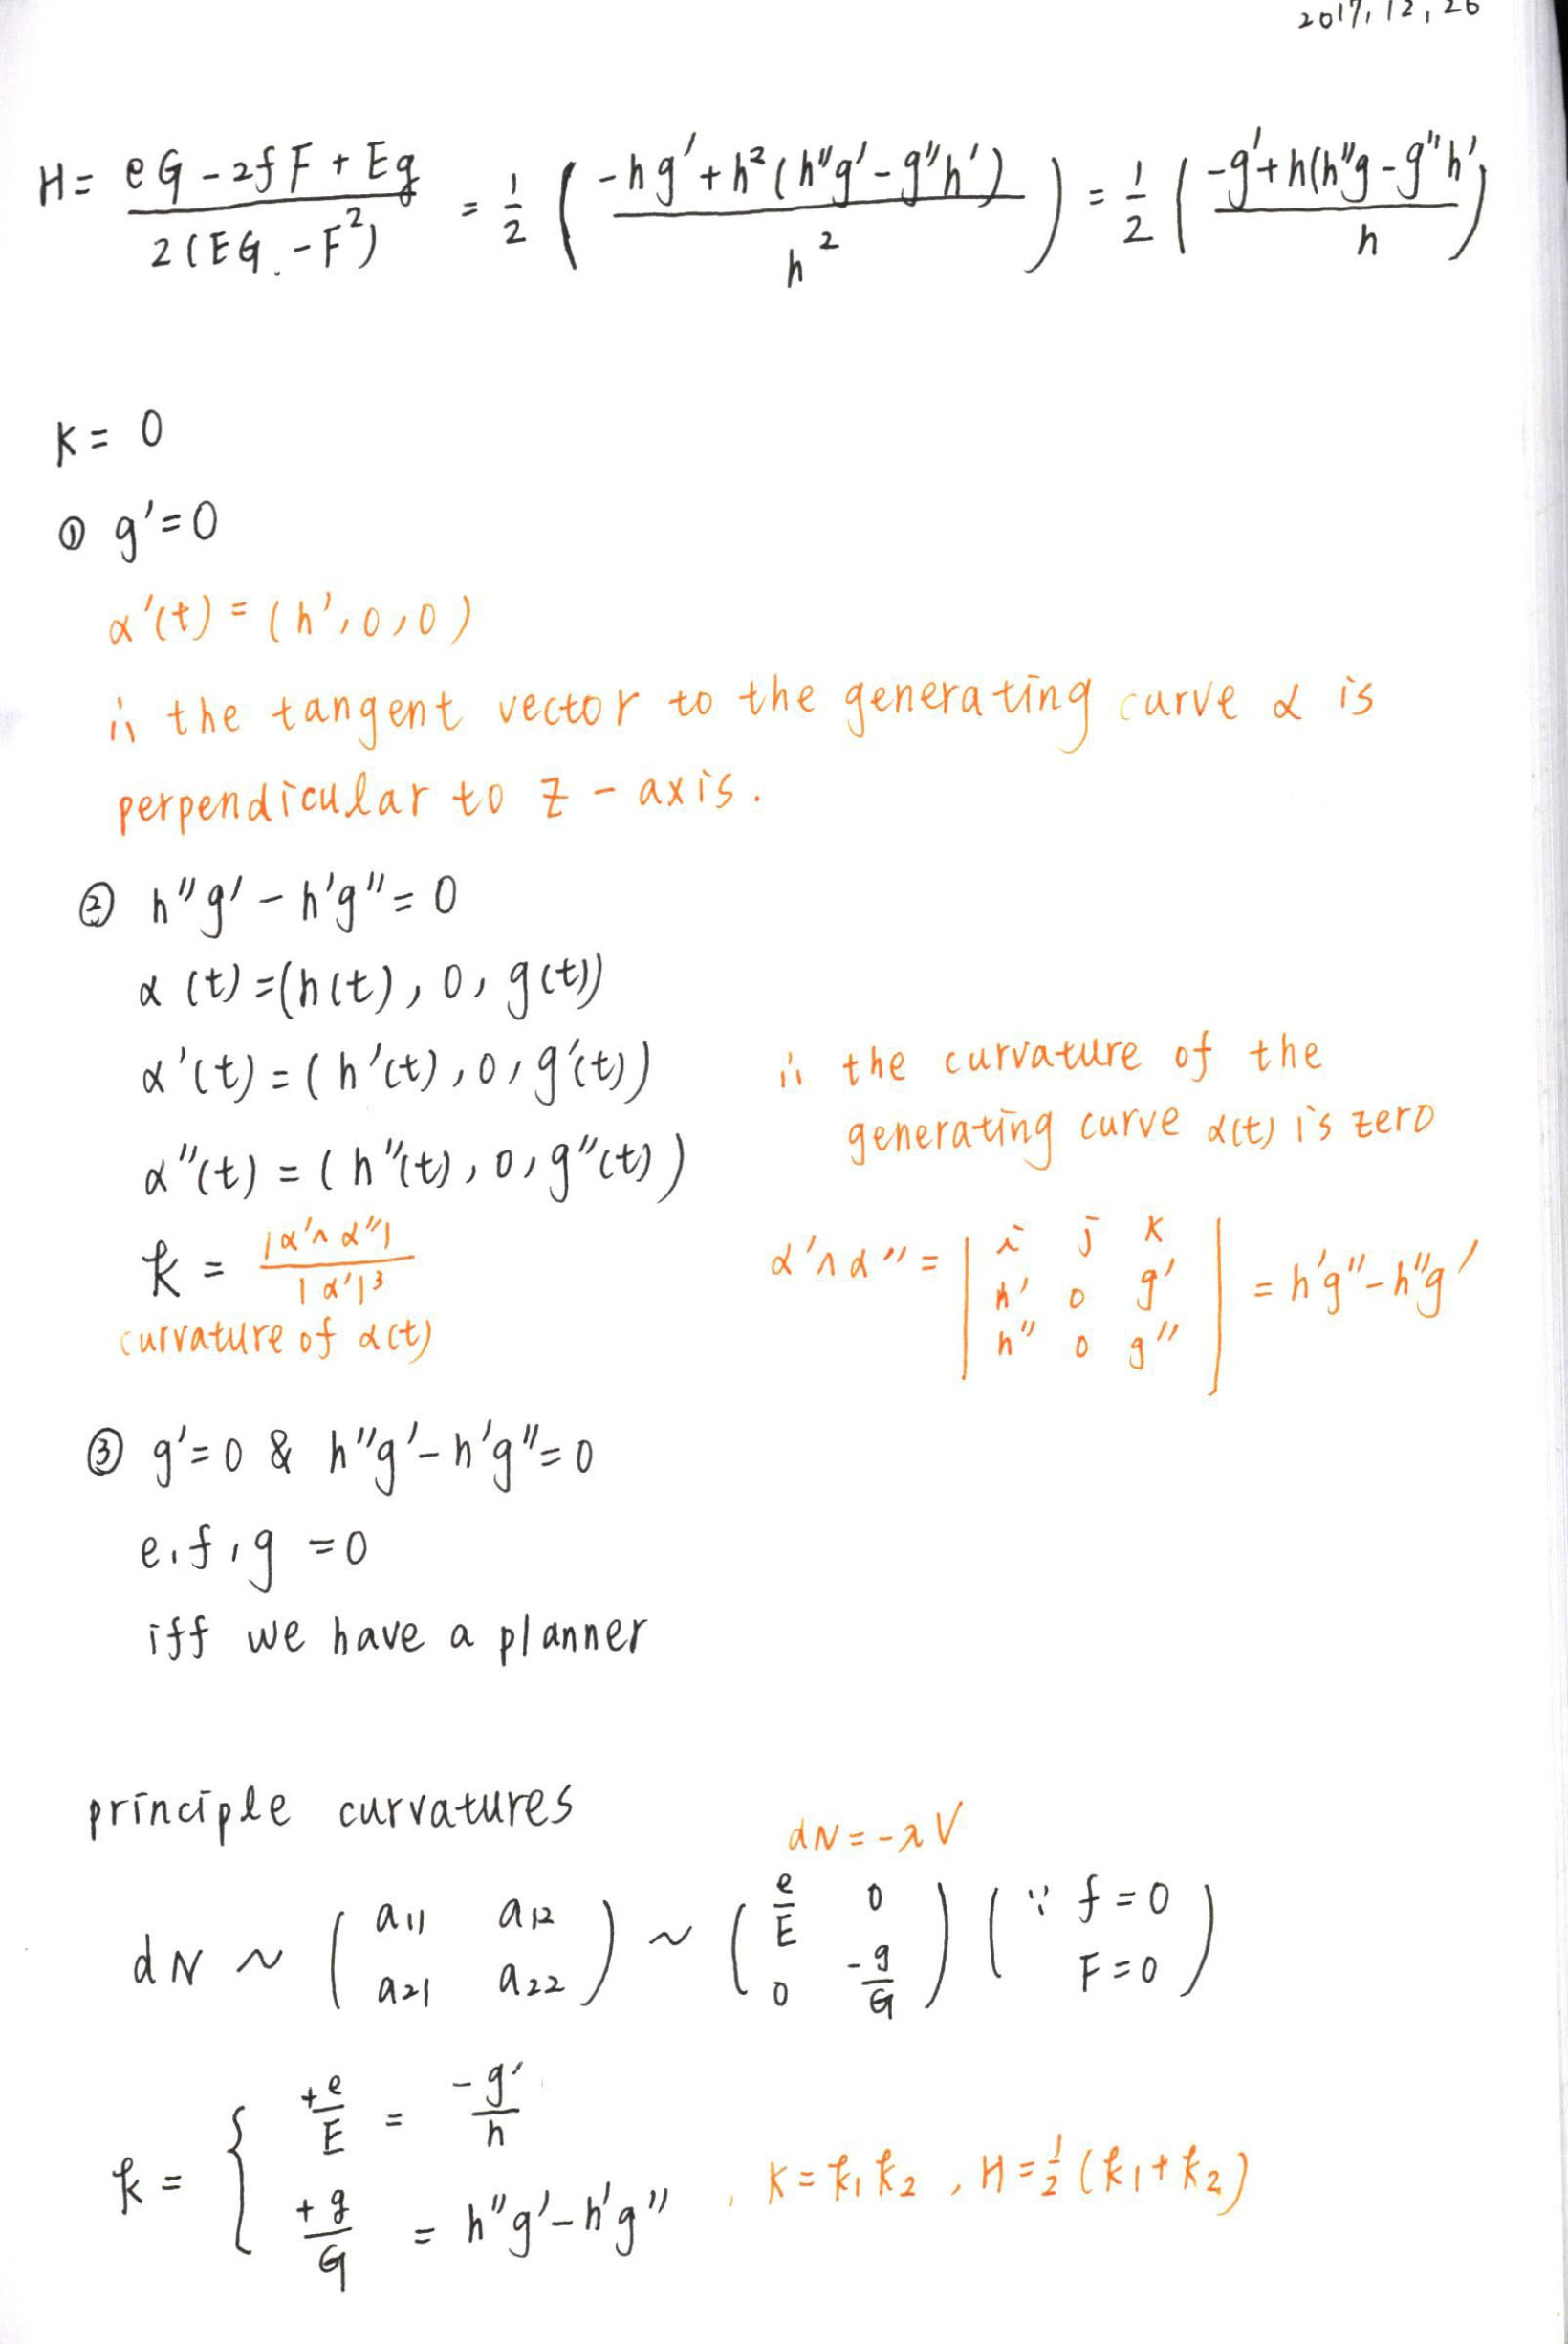 2017, 12, 26
H = \frac{eG - 2fF + Eg}{2(EG - F^2)} = \frac{1}{2} ( \frac{-hg' + h^2(h''g' - g''h')}{h^2} ) = \frac{1}{2} ( \frac{-g' + h(h''g - g''h')}{h} )
K = 0
① g' = 0
α'(t) = (h', 0, 0)
ii the tangent vector to the generating curve α is
perpendicular to z - axis.
② h''g' - h'g'' = 0
α(t) = (h(t), 0, g(t))
α'(t) = (h'(t), 0, g'(t))
ii the curvature of the
generating curve α(t) is zero
α''(t) = (h''(t), 0, g''(t))
k = \frac{|α' ∧ α''|}{|α'|^3}
curvature of α(t)
α' ∧ α'' = | i j k
h' 0 g'
h'' 0 g'' | = h'g'' - h''g'
③ g' = 0 & h''g' - h'g'' = 0
e, f, g = 0
iff we have a planner
principle curvatures
dN = -λV
dN ~ ( a11 a12
a21 a22 ) ~ ( \frac{e}{E} 0
0 -\frac{g}{G} ) ( ∵ f = 0
F = 0 )
k = { \frac{+e}{E} = \frac{-g'}{h}
\frac{+g}{G} = h''g' - h'g'' , K = k1 k2 , H = \frac{1}{2} (k1 + k2)